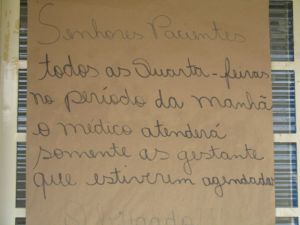 Senhores Pacientes
todos as Quarta-feiras
no período da manhã
o médico atenderá
somente as gestante
que estiverem agendada
Obrigado